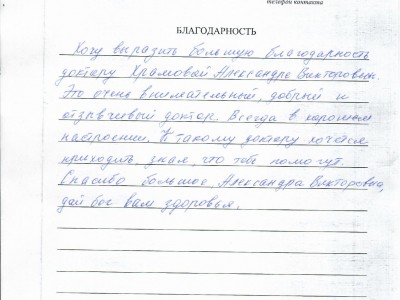 телефон контакта
БЛАГОДАРНОСТЬ
Хочу выразить большую благодарность
доктору Храмовой Александре Викторовне.
Это очень внимательный, добрый и
отзывчивый доктор. Всегда в хорошем
настроении. К такому доктору хочется
приходить, зная, что тебе помогут.
Спасибо большое, Александра Викторовна,
дай бог вам здоровья.